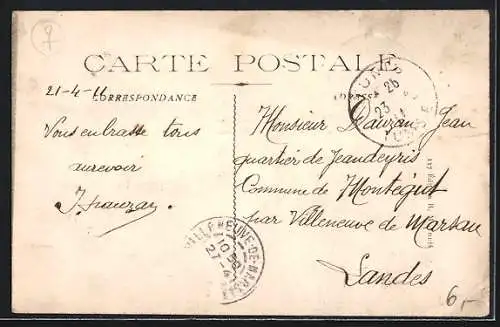 7
CARTE POSTALE
21-4-11
CORRESPONDANCE
Vous enbrasse tous
aurevoir
Monsieur Dauzan Jean
quartier de Jeandeyris
Commune de Montégut
par Villeneuve de Marsan
Landes
VILLENEUVE-DE-MARSAN
10
27 -4
26
23
6,-